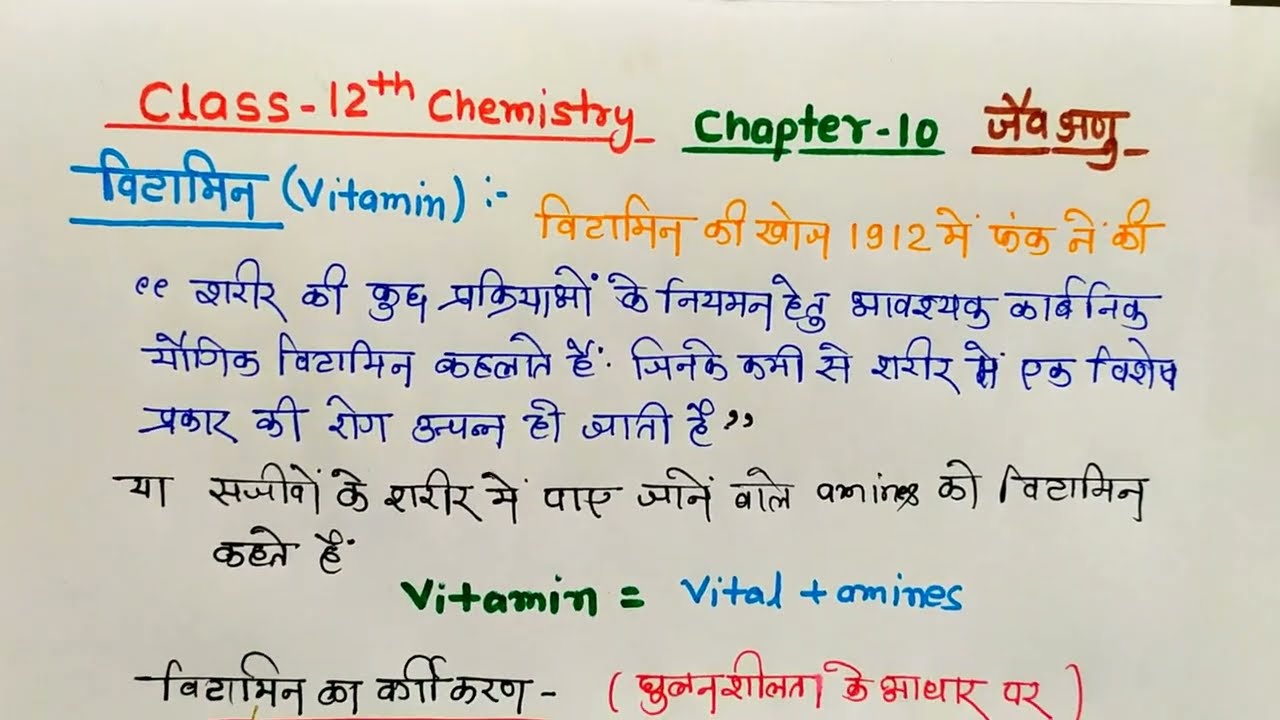 Class-12th Chemistry Chapter-10 जैव अणु
विटामिन (Vitamin) :- विटामिन की खोज 1912 में फंक नें की
“ शरीर की कुछ प्रक्रियाओं के नियमन हेतु आवश्यक कार्बनिक
यौगिक विटामिन कहलाते हैं. जिनके कमी से शरीर में एक विशेष
प्रकार की रोग उत्पन्न हो जाती है ”
या सजीवों के शरीर में पाए जानें वाले amines को विटामिन
कहते हैं
Vitamin = Vital + amines
विटामिन का वर्गीकरण - (घुलनशीलता के आधार पर)